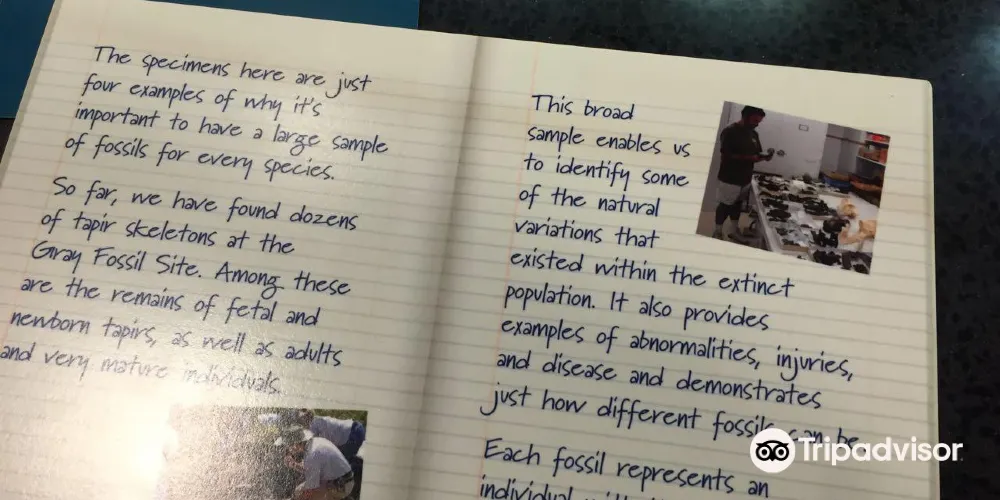 The specimens here are just
four examples of why it's
important to have a large sample
of fossils for every species.
So far, we have found dozens
of tapir skeletons at the
Gray Fossil Site. Among these
are the remains of fetal and
newborn tapirs, as well as adults
and very mature individuals.
This broad
sample enables us
to identify some
of the natural
variations that
existed within the extinct
population. It also provides
examples of abnormalities, injuries,
and disease and demonstrates
just how different fossils can be
Each fossil represents an
individual
Tripadvisor